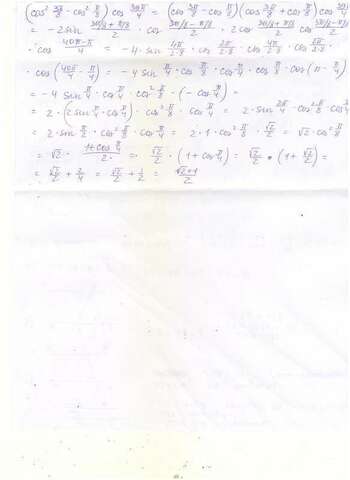 (cos² 3π/8 - cos² π/8) cos 39π/4 = (cos 3π/8 - cos π/8)(cos 3π/8 + cos π/8) cos 39π/4
= -2 sin (3π/8 + π/8)/2 · cos (3π/8 - π/8)/2 · 2 cos (3π/8 + π/8)/2 cos (3π/8 - π/8)/2
· cos (40π - π)/4 = -4 · sin 4π/2·8 · cos 2π/2·8 · cos 4π/2·8 · cos 2π/2·8
· cos (40π/4 - π/4) = -4 sin π/4 · cos π/8 · cos π/4 · cos π/8 · cos (π - π/4)
= -4 sin π/4 · cos π/4 · cos² π/8 · (-cos π/4) =
= 2 · (2 sin π/4 cos π/4) · cos² π/8 · cos π/4 = 2 · sin 2π/4 · cos² π/8 cos π/4
= 2 · sin π/2 · cos² π/8 · cos π/4 = 2 · 1 · cos² π/8 · √2/2 = √2 · cos² π/8
= √2 · (1 + cos π/4)/2 = √2/2 · (1 + cos π/4) = √2/2 · (1 + √2/2) =
= √2/2 + 2/4 = √2/2 + 1/2 = (√2 + 1)/2